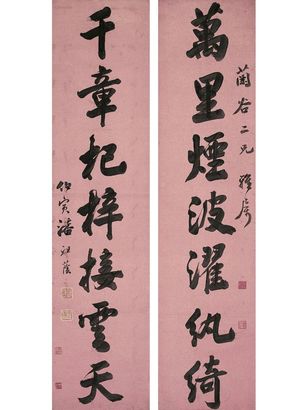 萬里煙波濯紈綺
蘭谷二兄雅屬
千章杞梓接雲天
潘祖蔭